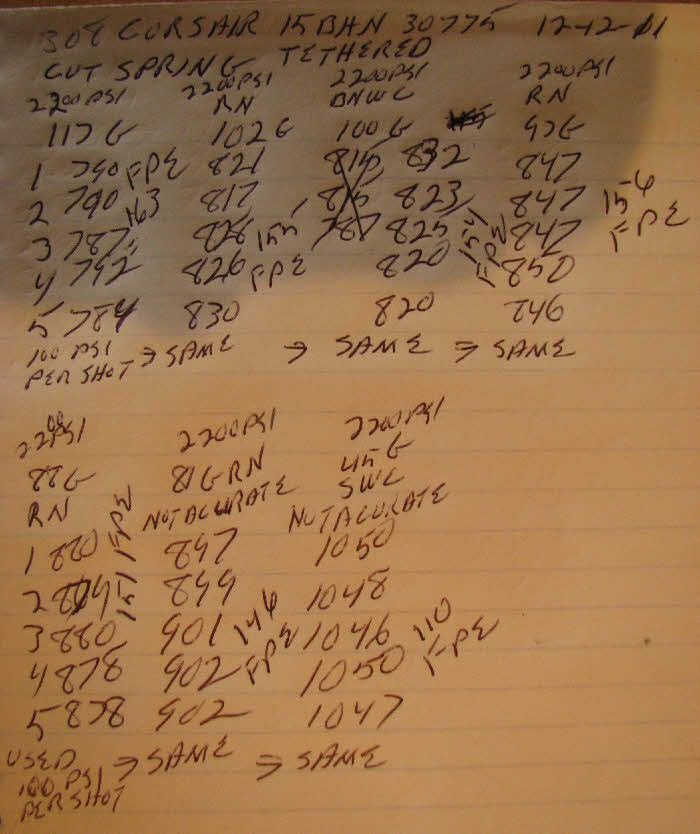 308 CORSAIR 15 BHN 30775 12-12-11
CUT SPRING TETHERED
2200PSI 2200PSI 2200PSI 2200PSI
RN BNWC RN
117G 102G 100G 97G
1 790 FPE 821 815 832 847
2 790 163 817 815 823 847 156
3 787 826 155 787 825 154 847 FPE
4 792 826 FPE 820 FPE 850
5 784 830 820 846
100 PSI → SAME → SAME → SAME
PER SHOT
2200PSI 2200PSI 2200PSI
88G 81G RN 45G
RN SWC
NOT ACURATE NOT ACURATE
1 880 FPE 897 1050
2 151 899 1048
3 880 901 146 1046 110
4 878 902 FPE 1050 FPE
5 878 902 1047
USED → SAME → SAME
100 PSI
PER SHOT